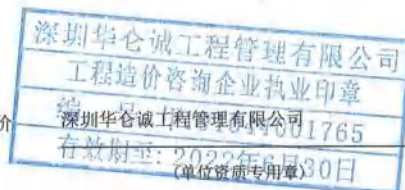 深圳华仑诚工程管理有限公司
工程造价咨询企业执业印章
价
深圳华仑诚工程管理有限公司
001765
有效期至：2022年6月30日
(单位资质专用章)